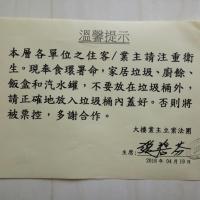 溫馨提示
本層各單位之住客/業主請注重衛
生。現奉食環署命，家居垃圾、廚餘、
飯盒和汽水罐，不要放在垃圾桶外，
請正確地放入垃圾桶內蓋好。否則將
被票控，多謝合作。
大樓業主立案法團
主席:
2018年04月19日